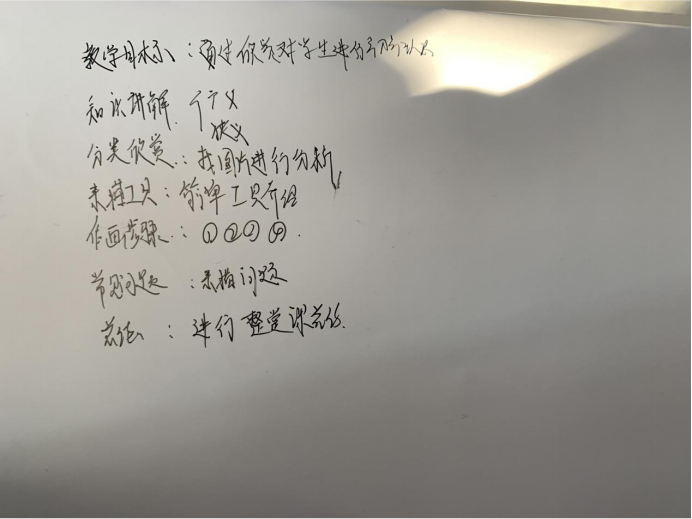 教学目标：通过欣赏对学生进行初步认识
知识讲解 广义
狭义
分类欣赏：找图片进行分析
素描工具：简单工具介绍
作画步骤：①②③④.
常见问题：素描问题
总结：进行整堂课总结.